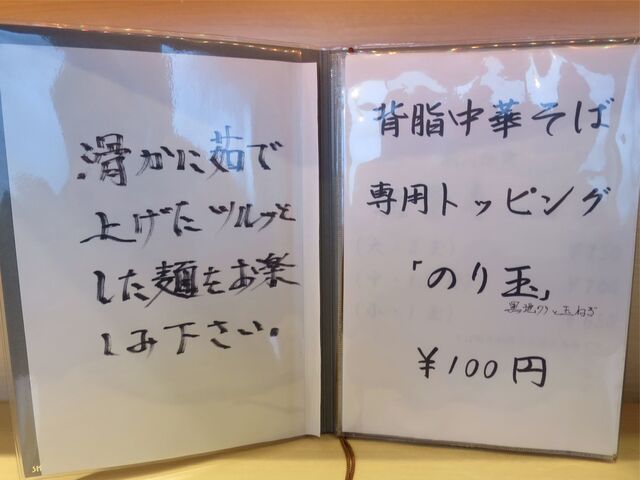 滑かに茹で
上げたツルッと
した麺をお楽
しみ下さい。
背脂中華そば
専用トッピング
「のり玉」
黒ばらのりと玉ねぎ
¥100円